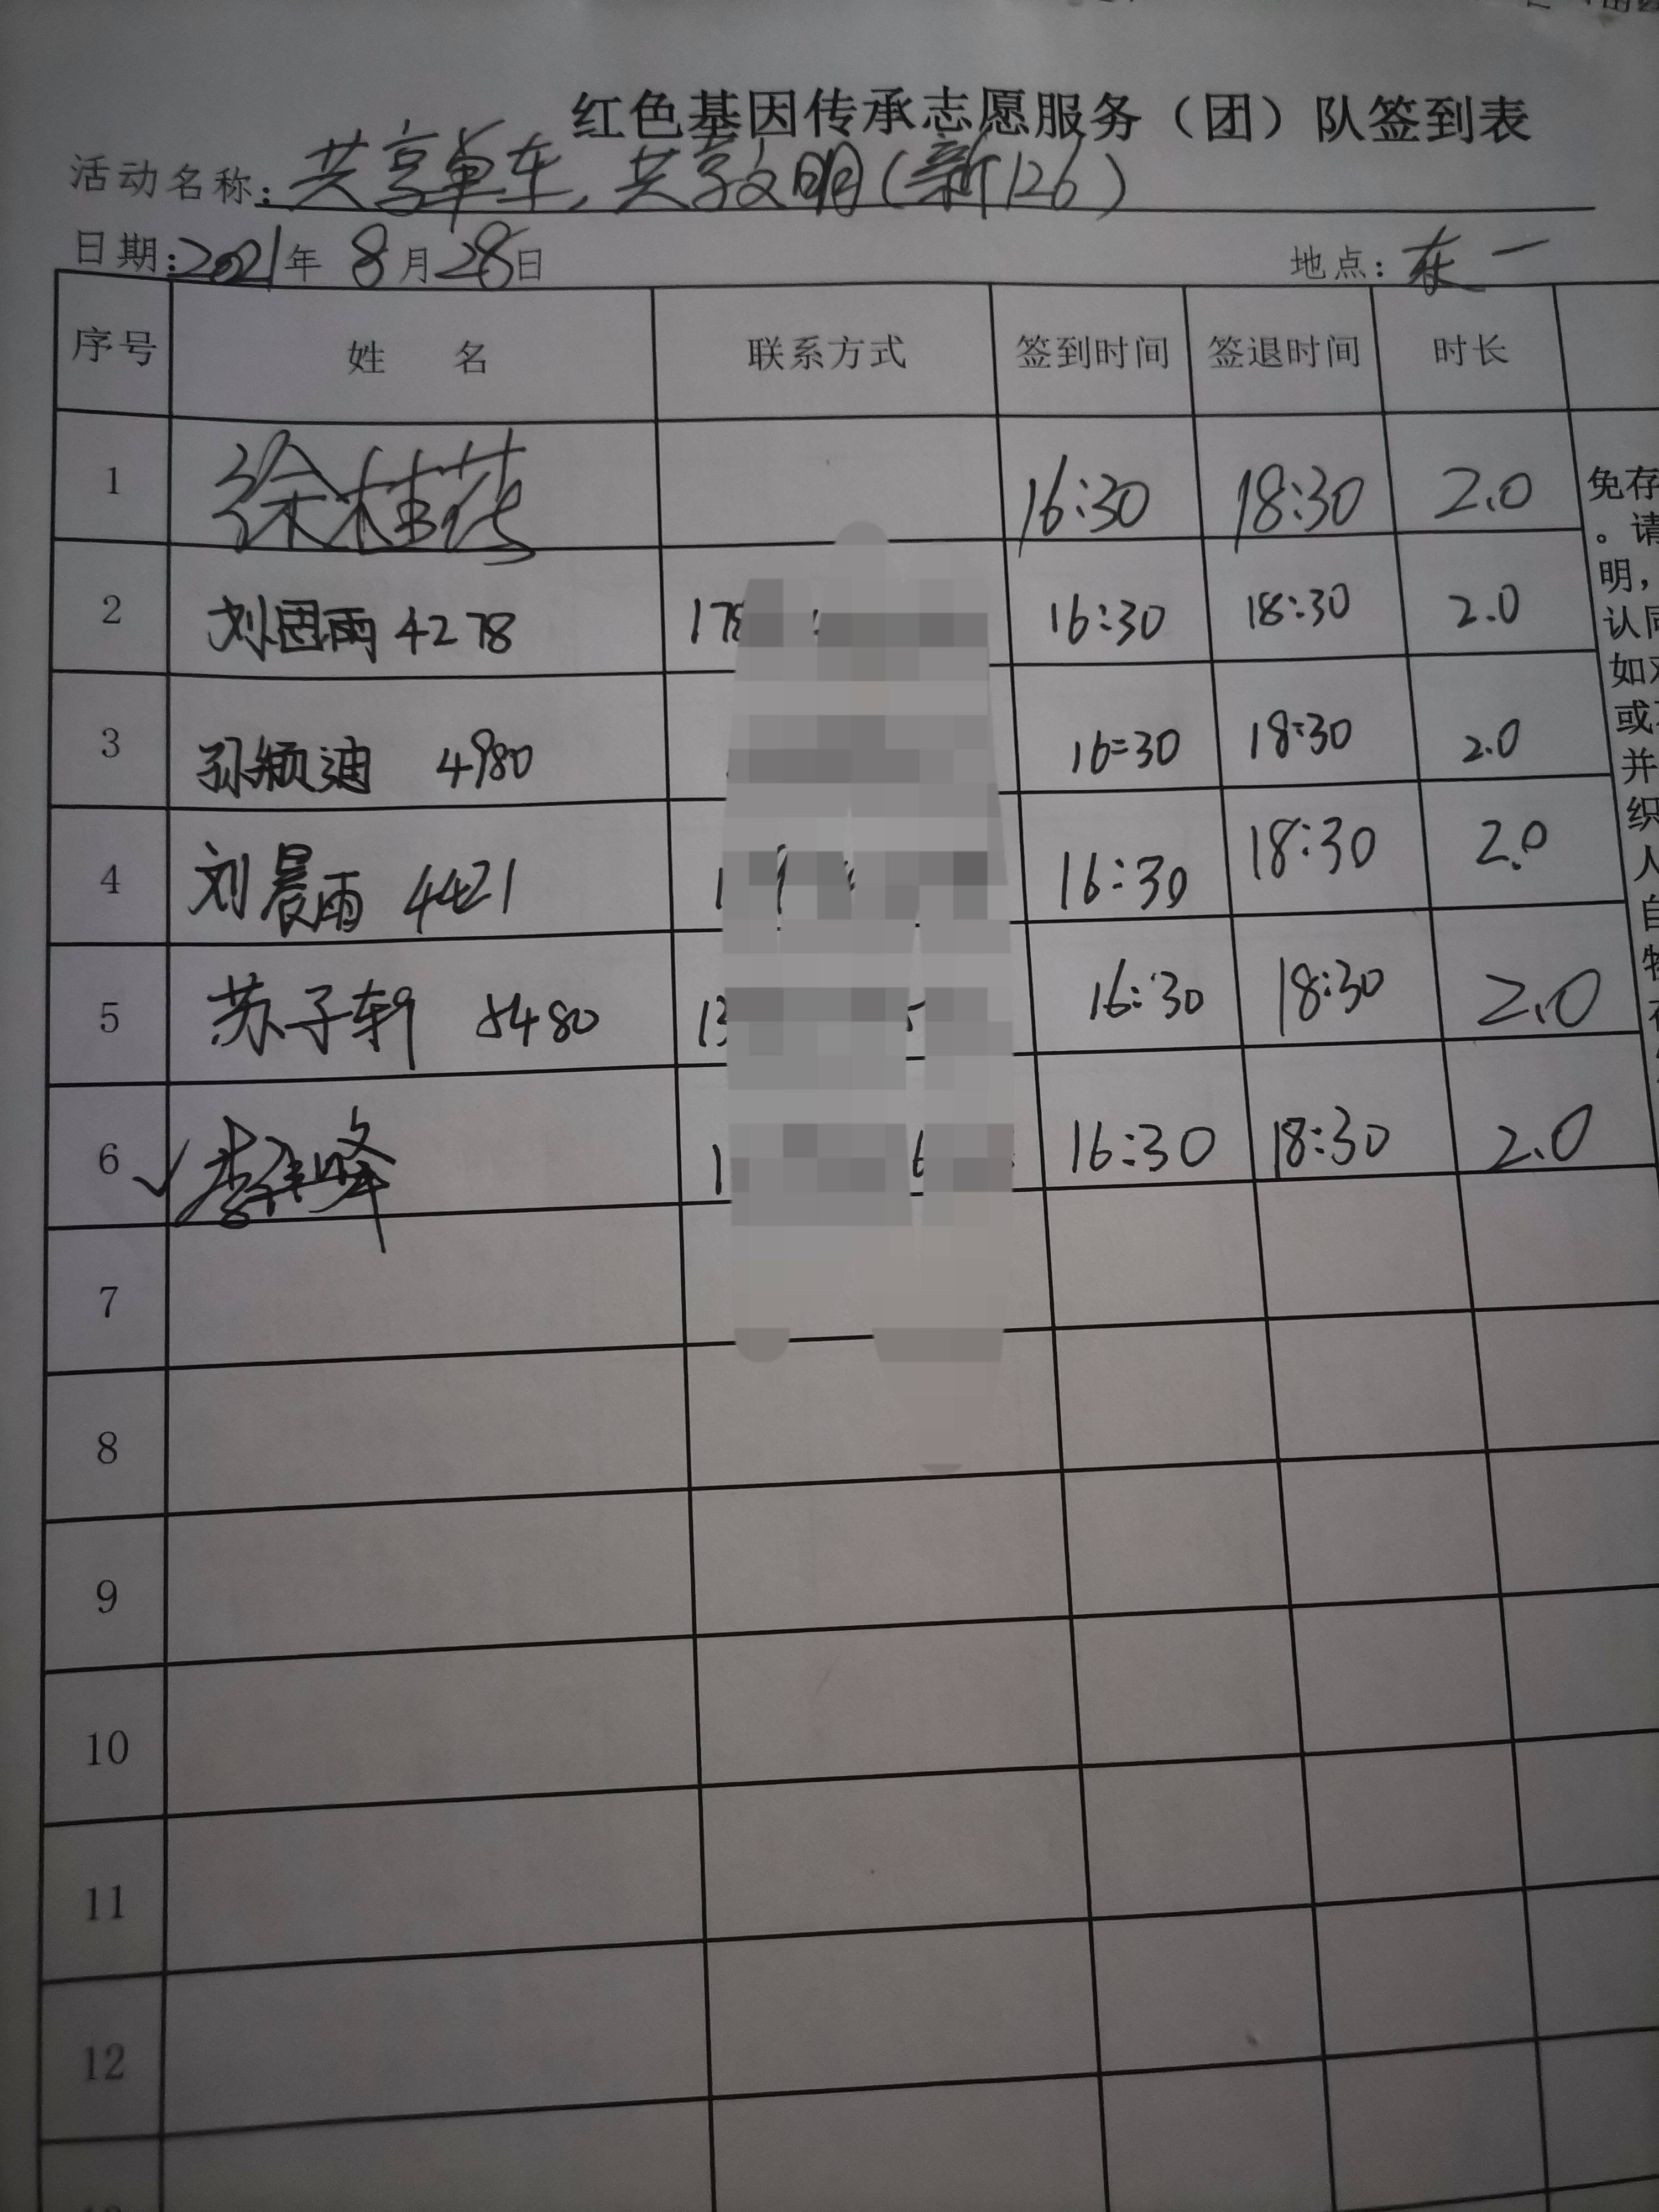 红色基因传承志愿服务（团）队签到表
活动名称：共享单车，共享文明（新126）
日期：2021年 8月28日 地点：东一
序号 姓 名 联系方式 签到时间 签退时间 时长
1 徐桂花 16:30 18:30 2.0
2 刘思雨 4278 178 16:30 18:30 2.0
3 孙颖迪 4980 16:30 18:30 2.0
4 刘晨雨 4421 1 16:30 18:30 2.0
5 苏子轩 8480 13 16:30 18:30 2.0
6 李 峰 1 6 16:30 18:30 2.0
7
8
9
10
11
12
免存
。请
明，
认同
如
或
并
织
人
自